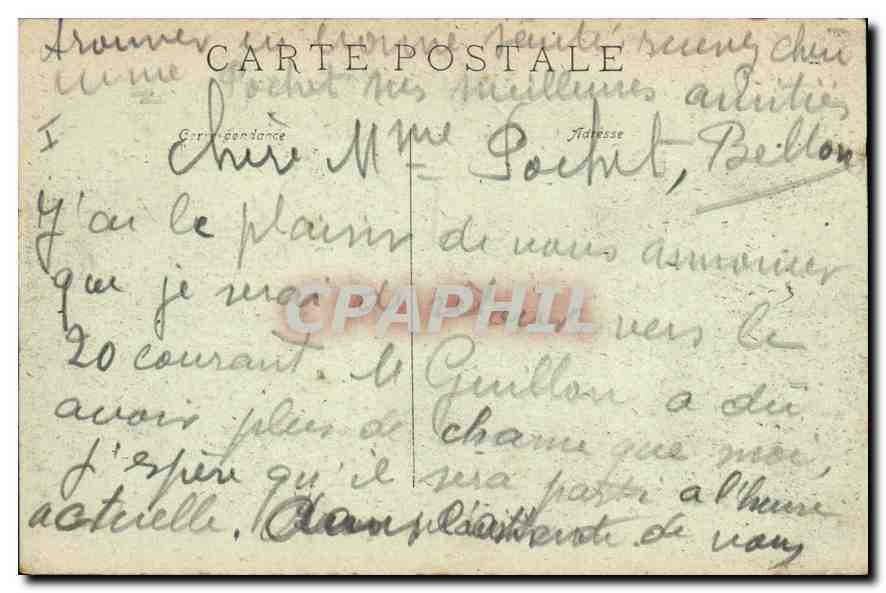 trouver en bonne santé recevez chère
Mme Pochet mes meilleures amitiés
CARTE POSTALE
I
Correspondance
Adresse
Chère Mme Pochet, Bellon
J'ai le plaisir de vous annoncer
que je serai de vers le
CPAPHIL
20 courant. M Guillon a dû
avoir plus de chance que moi,
J'espère qu'il sera parti a l'heure
actuelle. Dans l'attente de vous